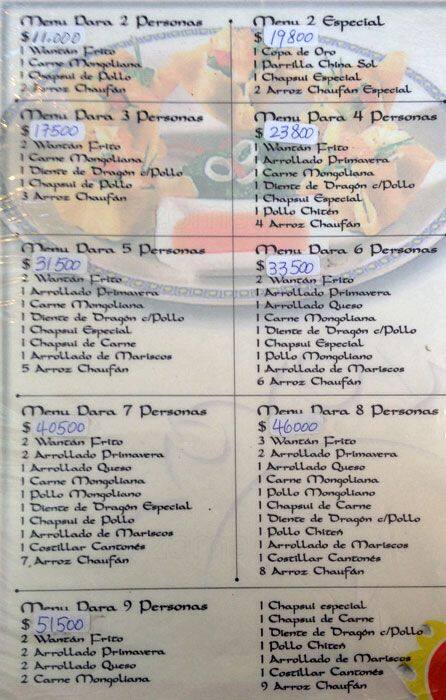 Menu Para 2 Personas
$ 11.000
1 Wantán Frito
1 Carne Mongoliana
1 Chapsui de Pollo
2 Arroz Chaufán
Menu 2 Especial
$ 19800
1 Copa de Oro
1 Parrilla China Sol
1 Chapsui Especial
2 Arroz Chaufán Especial
Menu Para 3 Personas
$ 17500
2 Wantán Frito
1 Carne Mongoliana
1 Diente de Dragón c/Pollo
1 Chapsui de Pollo
3 Arroz Chaufán
Menu Para 4 Personas
$ 23800
1 Wantán Frito
1 Arrollado Primavera
1 Carne Mongoliana
1 Diente de Dragón c/Pollo
1 Chapsui Especial
1 Pollo Chitén
4 Arroz Chaufán
Menu Para 5 Personas
$ 31500
2 Wantán Frito
1 Arrollado Primavera
1 Carne Mongoliana
1 Diente de Dragón c/Pollo
1 Chapsui Especial
1 Chapsui de Carne
1 Arrollado de Mariscos
5 Arroz Chaufán
Menu Para 6 Personas
$ 33500
2 Wantán Frito
1 Arrollado Primavera
1 Arrollado Queso
1 Carne Mongoliana
1 Diente de Dragón c/Pollo
1 Chapsui Especial
1 Pollo Mongoliano
1 Arrollado de Mariscos
6 Arroz Chaufán
Menu Para 7 Personas
$ 40500
2 Wantán Frito
2 Arrollado Primavera
1 Arrollado Queso
1 Carne Mongoliana
1 Pollo Mongoliano
1 Diente de Dragón Especial
1 Chapsui de Pollo
1 Arrollado de Mariscos
1 Costillar Cantonés
7 Arroz Chaufán
Menu Para 8 Personas
$ 46000
3 Wantán Frito
2 Arrollado Primavera
1 Arrollado Queso
1 Carne Mongoliana
1 Pollo Mongoliano
1 Chapsui de Carne
1 Diente de Dragón c/Pollo
1 Pollo Chitén
1 Arrollado de Mariscos
1 Costillar Cantonés
8 Arroz Chaufán
Menu Para 9 Personas
$ 51500
2 Wantán Frito
2 Arrollado Primavera
2 Arrollado Queso
2 Carne Mongoliana
1 Chapsui especial
1 Chapsui de Carne
1 Diente de Dragón c/Pollo
1 Pollo Chitén
1 Arrollado de Mariscos
1 Costillar Cantonés
9 Arroz Chaufán